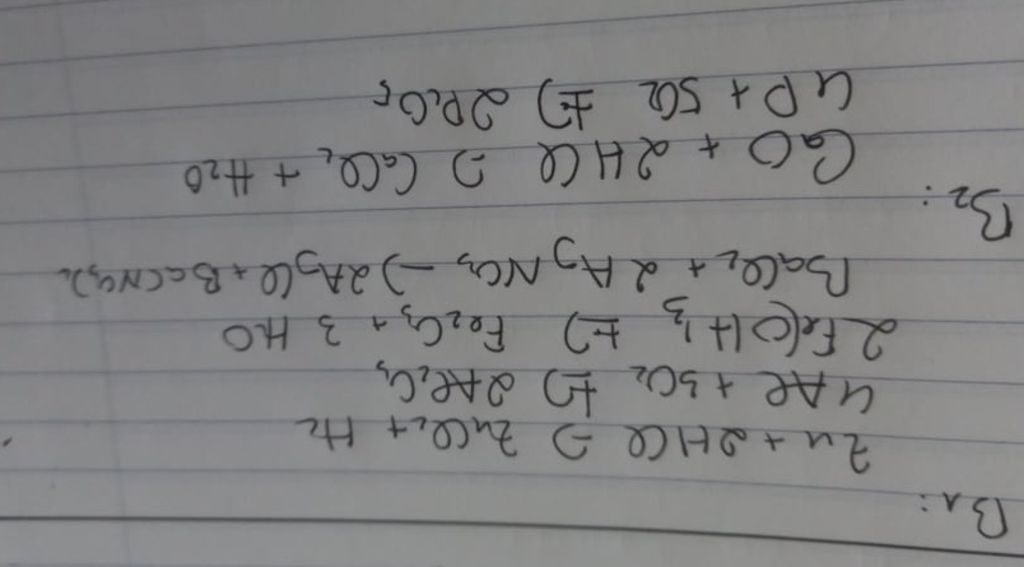 B1:
Zn + 2HCl → ZnCl2 + H2
4Al + 3O2 →t° 2Al2O3
2Fe(OH)3 →t° Fe2O3 + 3H2O
BaCl2 + 2AgNO3 → 2AgCl + Ba(NO3)2
B2:
CaO + 2HCl → CaCl2 + H2O
4P + 5O2 →t° 2P2O5